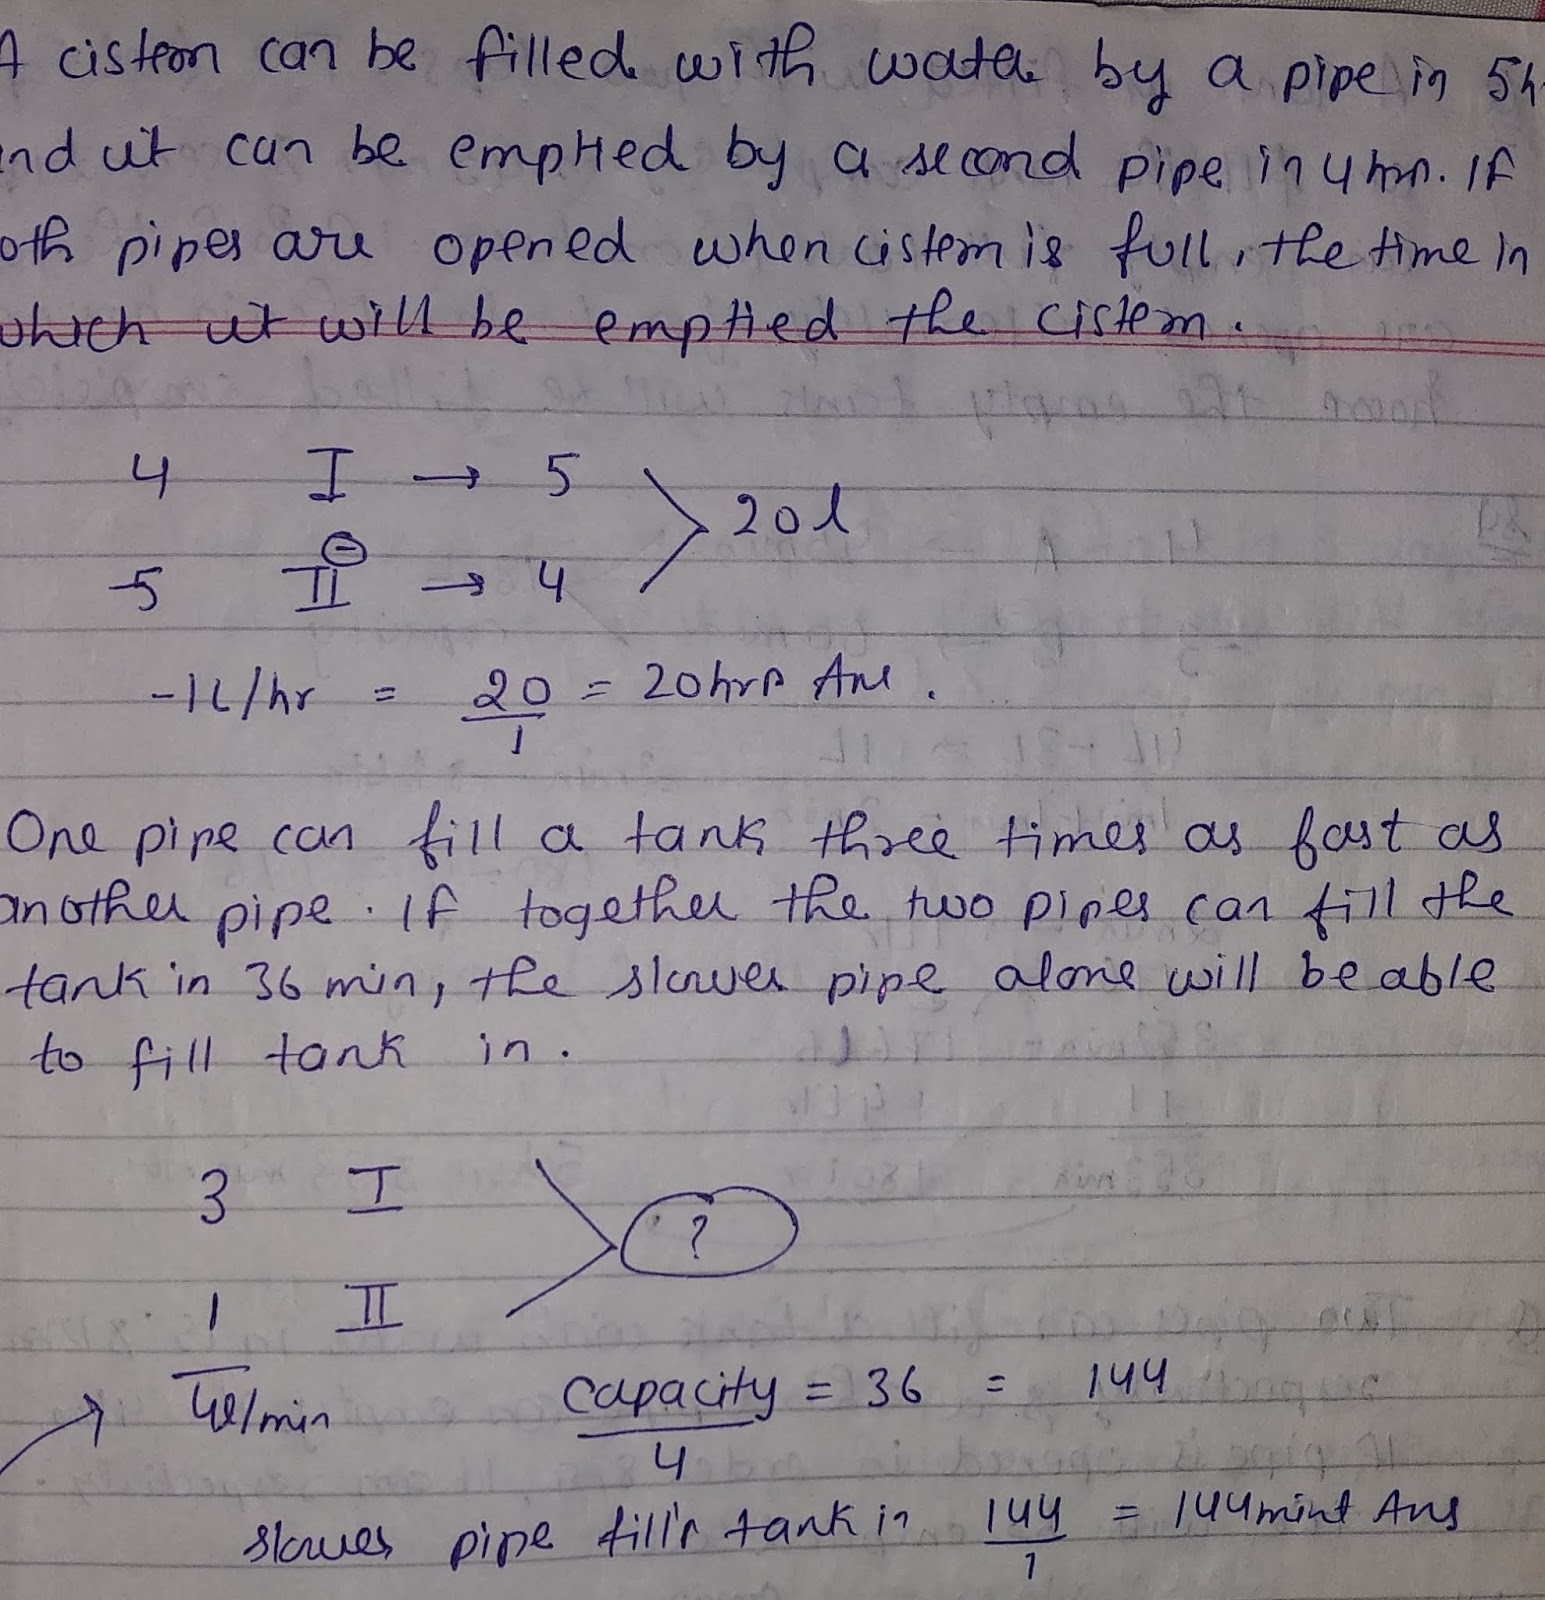 A cistern can be filled with water by a pipe in 5h
nd it can be emptied by a second pipe in 4 hrs. If
oth pipes are opened when cistern is full, the time in
which it will be emptied the cistern.
4 I → 5
20l
-5 II ⊖ → 4
-1L/hr = 20/1 = 20hrs Ans.
One pipe can fill a tank three times as fast as
another pipe. If together the two pipes can fill the
tank in 36 min, the slower pipe alone will be able
to fill tank in.
3 I
?
1 II
4l/min Capacity/4 = 36 = 144
slower pipe fill's tank in 144/1 = 144mint Ans